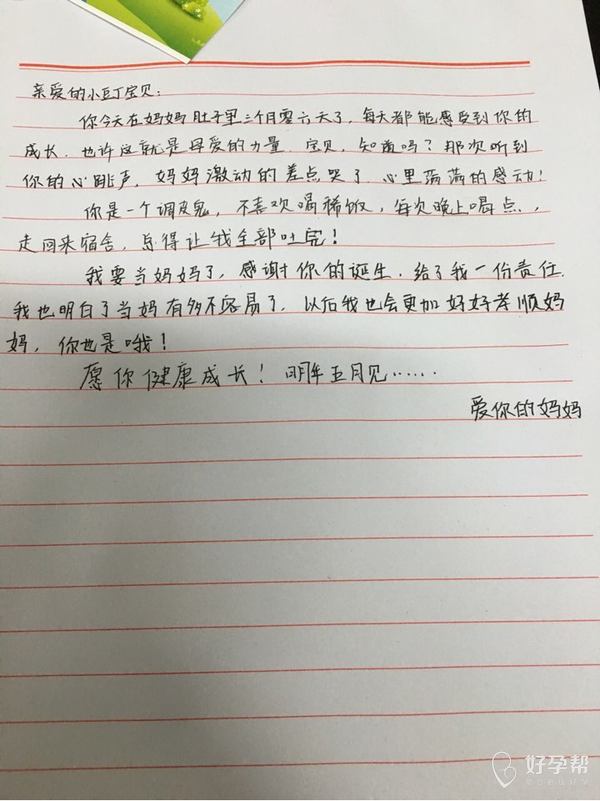 亲爱的小豆丁宝贝：
你今天在妈妈肚子里三个月零六天了，每天都能感受到你的
成长，也许这就是母爱的力量，宝贝，知道吗？那次听到
你的心跳声，妈妈激动的差点哭了，心里满满的感动！
你是一个调皮鬼，不喜欢喝稀饭，每次晚上喝点，
走回来宿舍，总得让我全部吐完！
我要当妈妈了，感谢你的诞生，给了我一份责任，
我也明白了当妈有多不容易了，以后我也会更加好好孝顺妈
妈，你也是哦！
愿你健康成长！明年五月见……
爱你的妈妈
好孕帮